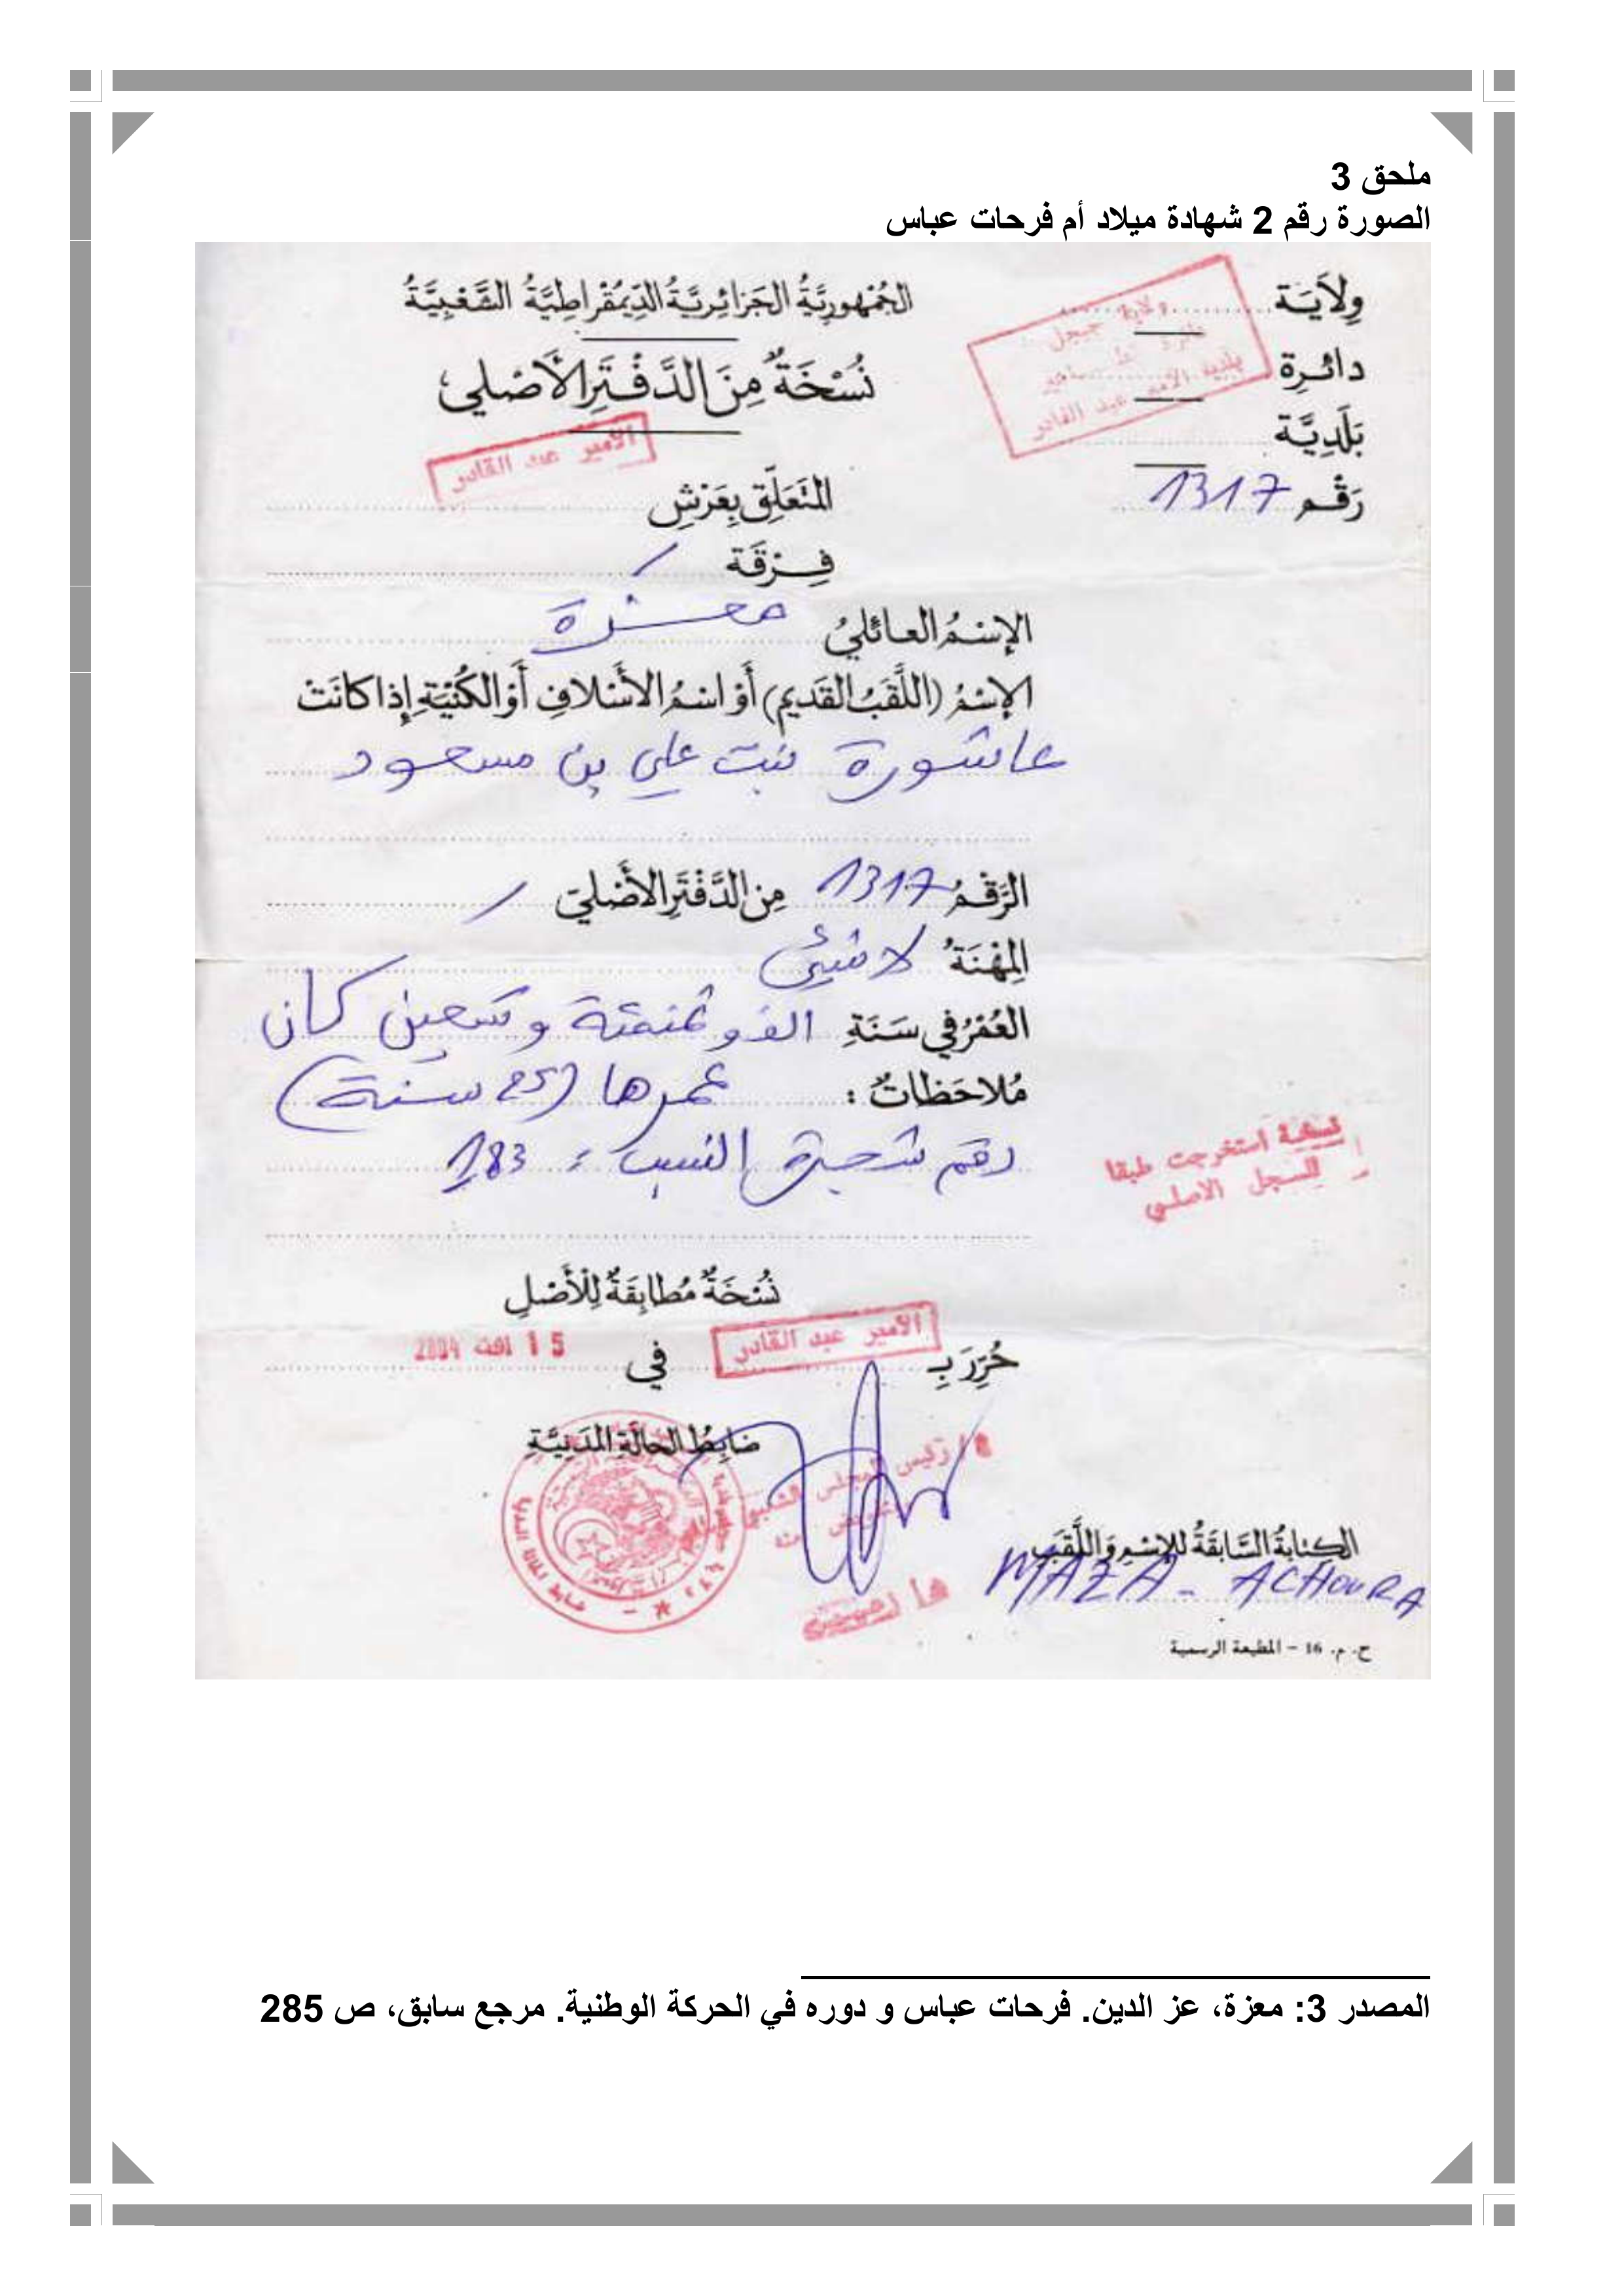 ملحق 3
الصورة رقم 2 شهادة ميلاد أم فرحات عباس
الجُمْهورِيَّةُ الجَزائِرِيَّةُ الدِّيمُقْراطِيَّةُ الشَّعْبِيَّةُ
وِلاَيَة
ولاية جيجل
دائرة
دائرة
بَلَدِيَّة
بلدية الأمير عبد القادر
رَقْم 1317
نُسْخَةٌ مِنَ الدَّفْتَرِ الأَصْلي
الأمير عبد القادر
المتَعَلِّق بِعَرْشِ
فِرْقَة /
الإسْمُ العائليُ معزة
الإسْمُ (اللَّقَبُ القَديم) أَوْ اسْمُ الأَسْلافِ أَوْ الكُنْيَةِ إِذا كانَتْ
عاشورة بنت علي بن مسعود
الرَّقْمُ 1317 مِن الدَّفْتَرِ الأَصْليّ /
المِهْنَةُ لا شيئ
العُمْرُ في سَنَةِ الف و ثمنمئة و تسعين كان
مُلاحَظاتٌ : عمرها (25 سنة)
رقم شجرة النسب : 183
نسخة استخرجت طبقا
للسجل الاصلي
نُسْخَةٌ مُطابِقَةٌ لِلأَصْلِ
حُرِّرَ بِ الأمير عبد القادر في 15 اوت 2004
ضابِطُ الحالَةِ المَدَنِيَّةِ
رئيس المجلس الشعبي
الكِتابَةُ السَّابِقَةُ لِلإِسْمِ وَاللَّقَبِ
MAZA - ACHOURA
ح. م. 16 – المطبعة الرسمية
المصدر 3: معزة، عز الدين. فرحات عباس و دوره في الحركة الوطنية. مرجع سابق، ص 285